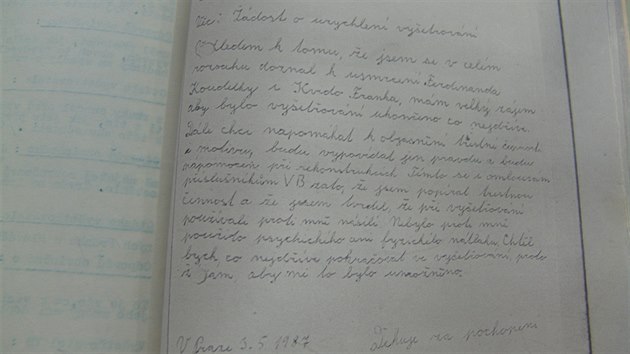 Věc: Žádost o urychlení vyšetřování
Vzhledem k tomu, že jsem se v celém
rozsahu doznal k usmrcení Ferdinanda
Koudelky i Kvido Franka, mám velký zájem
aby bylo vyšetřování ukončeno co nejdříve.
Dále chci napomáhat k objasnění trestné činnosti
a motivů, budu vypovídat jen pravdu a budu
nápomocen při rekonstrukcích Tímto se i omlouvám
příslušníkům VB zato, že jsem popíral trestnou
činnost a že jsem tvrdil, že při vyšetřování
používali proti mně násilí. Nebylo proti mně
použito psychického ani fyzického nátlaku. Chtěl
bych co nejdříve pokračovat ve vyšetřování, proto
žádám, aby mi to bylo umožněno.
V Praze 3. 5 1987 Děkuji za pochopení